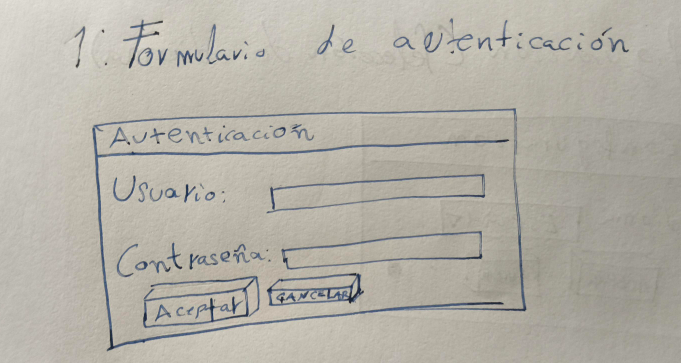 1: Formulario de autenticación
Autenticación
Usuario:
Contraseña:
Aceptar CANCELAR